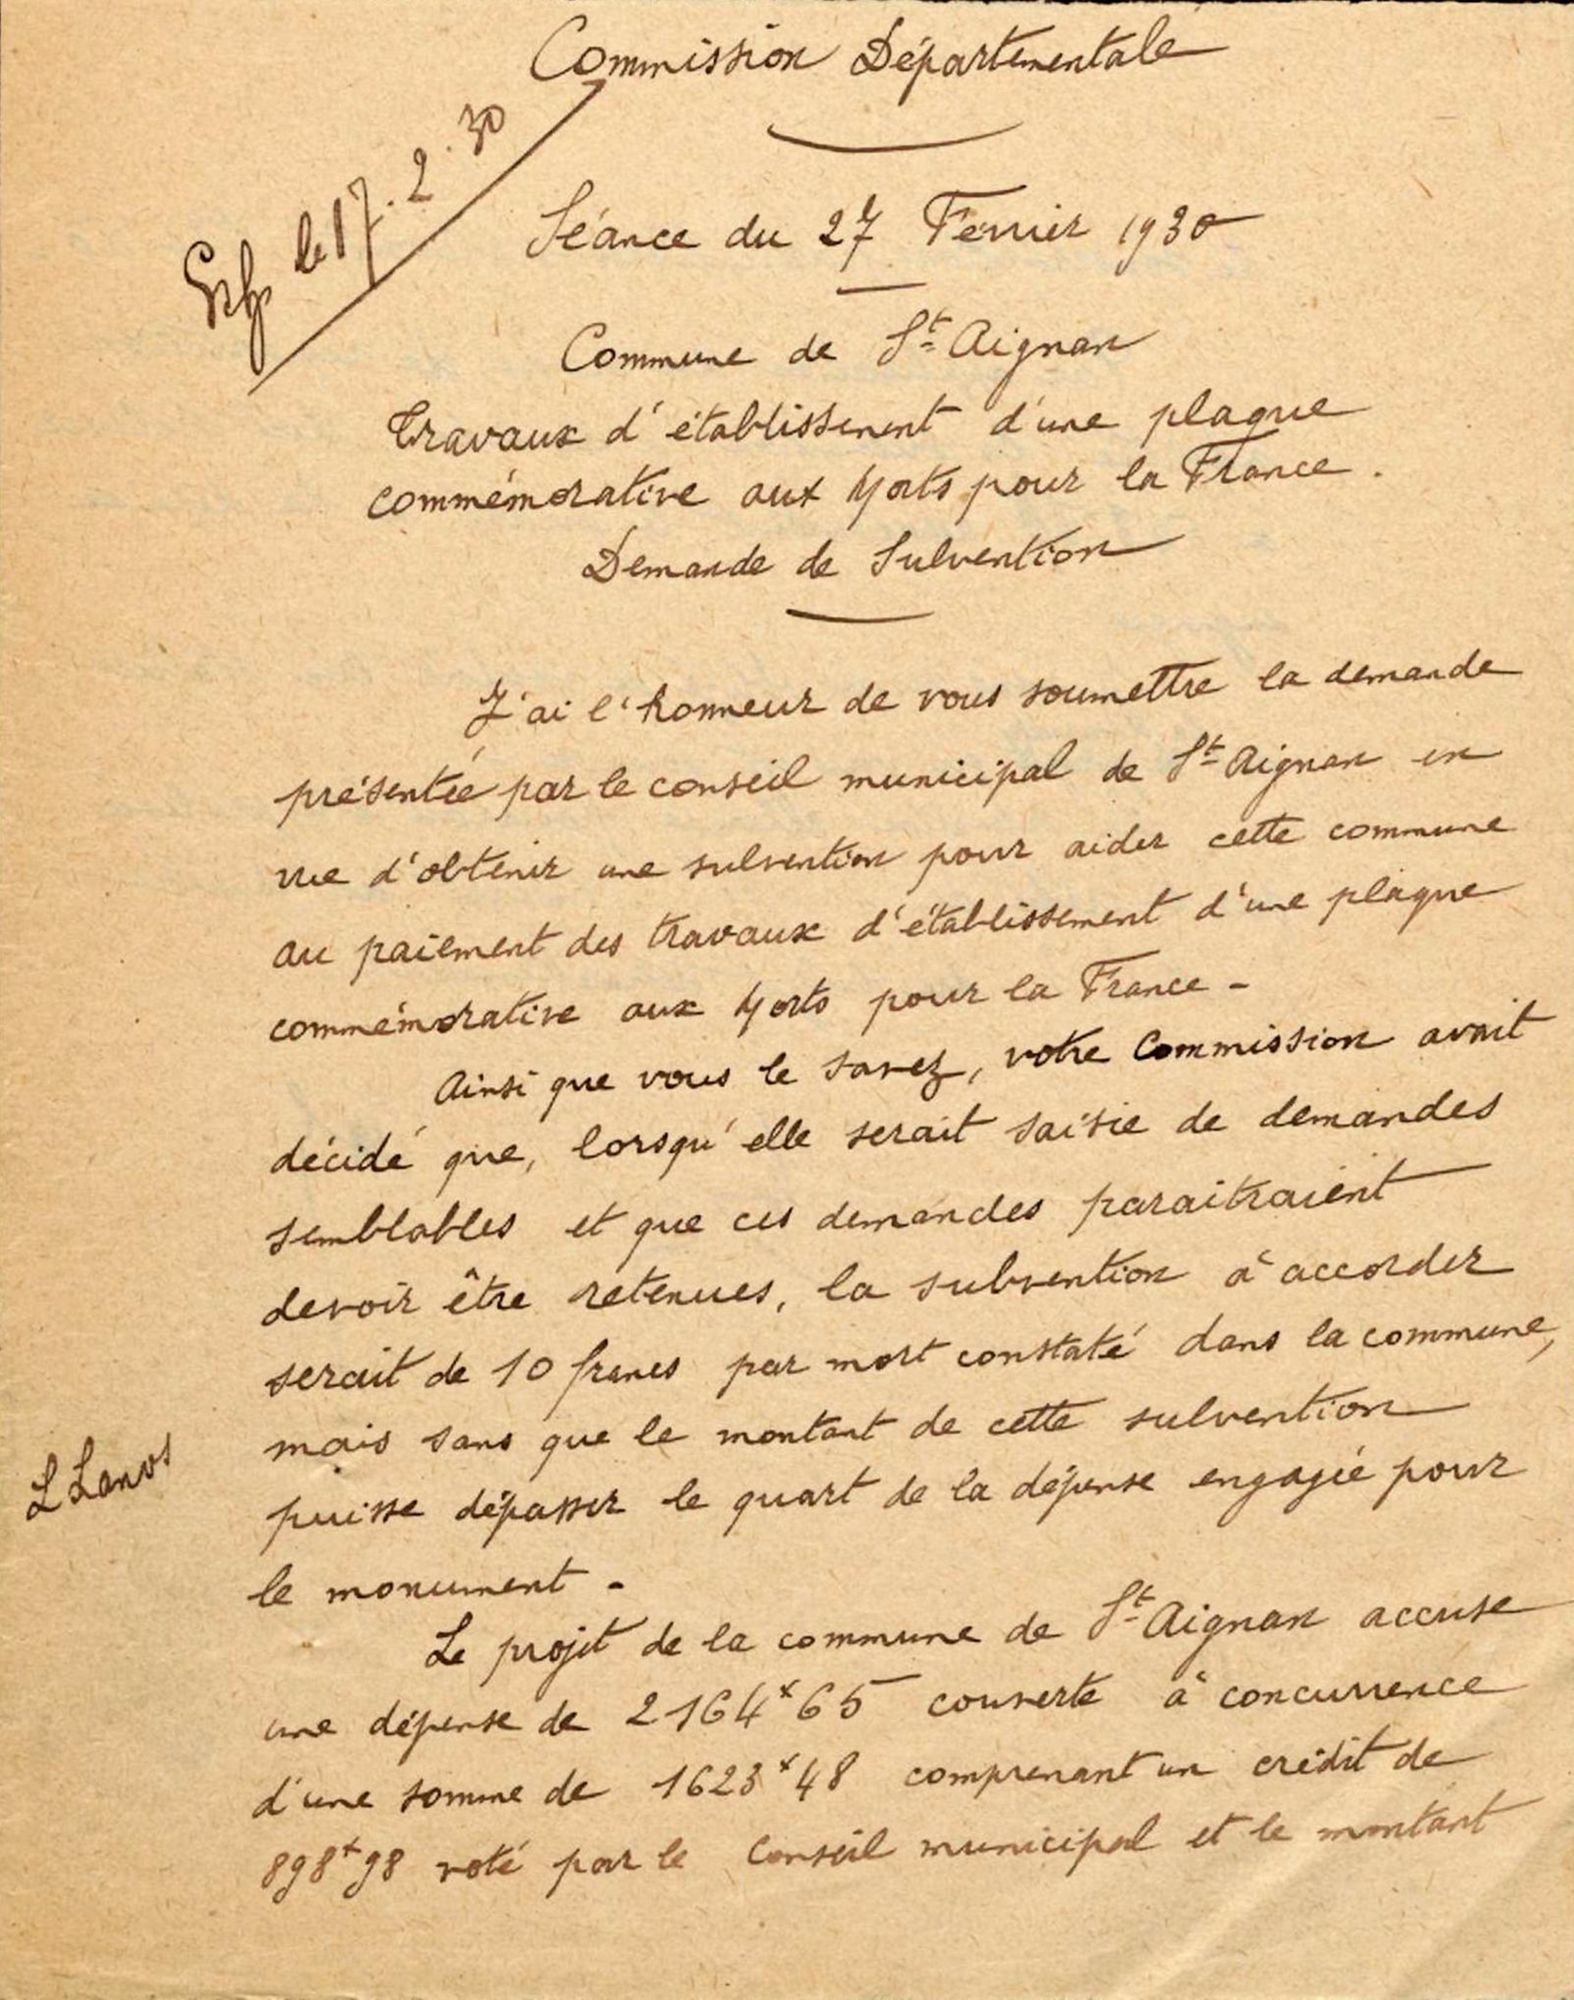 Commission Départementale
Exp le 17.2.30
Séance du 27 Février 1930
Commune de St Aignan
Travaux d'établissement d'une plaque
commémorative aux Morts pour la France.
Demande de Subvention
J'ai l'honneur de vous soumettre la demande
présentée par le conseil municipal de St Aignan en
vue d'obtenir une subvention pour aider cette commune
au paiement des travaux d'établissement d'une plaque
commémorative aux Morts pour la France -
Ainsi que vous le savez, votre Commission avait
décidé que, lorsqu'elle serait saisie de demandes
semblables et que ces demandes paraitraient
devoir être retenues, la subvention à accorder
serait de 10 francs par mort constaté dans la commune,
mais sans que le montant de cette subvention
puisse dépasser le quart de la dépense engagée pour
le monument -
Le projet de la commune de St Aignan accuse
une dépense de 2164f65 couverte à concurrence
d'une somme de 1623f48 comprenant un crédit de
898f98 voté par le Conseil municipal et le montant